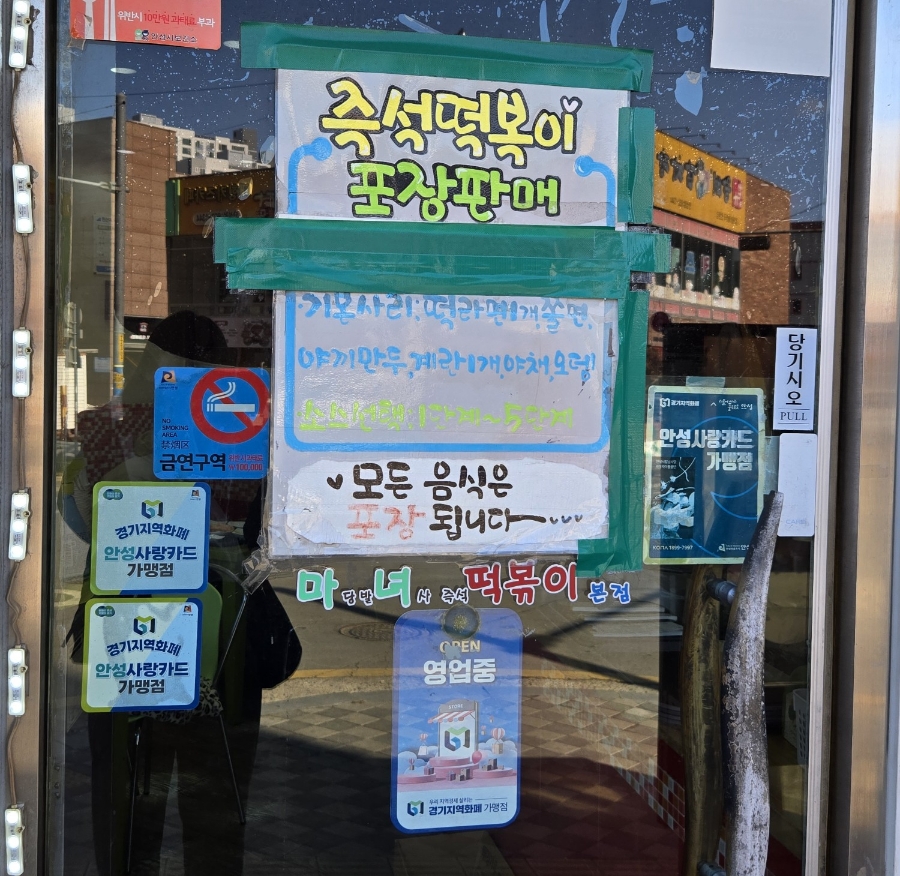 위반시 10만원 과태료 부과
즉석떡볶이
포장판매
기본사리:떡라면1개,쫄면,
야끼만두,계란1개,야채,오뎅!
소스선택:1단계~5단계
모든 음식은
포장 됩니다~
마담밥녀사 즉석떡볶이 본점
NO
SMOKING
AREA
禁烟区
금연구역
₩100,000
경기지역화폐
안성사랑카드
가맹점
경기지역화폐
안성사랑카드
가맹점
OPEN
영업중
STORE
경기지역화폐 가맹점
경기지역화폐
안성사랑카드
가맹점
KONA 1899-7997
당기시오
PULL